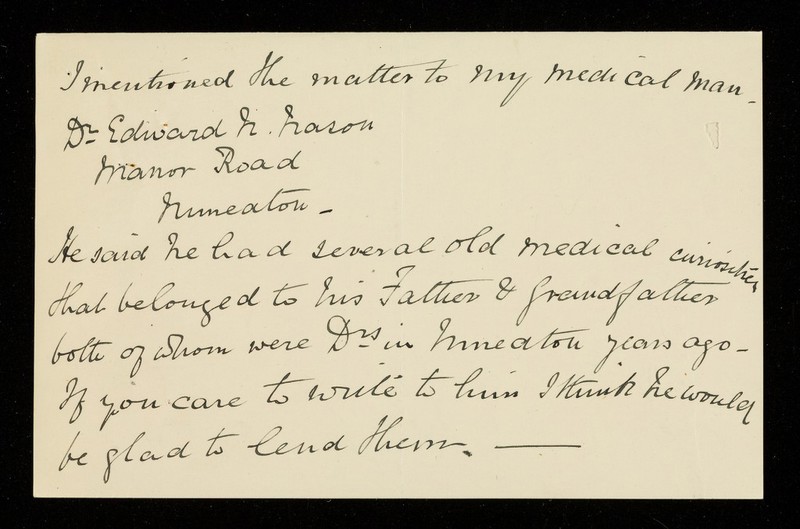 I mentioned the matter to my medical man -
Dr Edward N. Nason
Manor Road
Nuneaton -
He said he had several old medical curiosities
that belonged to his Father & Grandfather
both of whom were Drs in Nuneaton years ago -
If you care to write to him I think he would
be glad to lend them. —